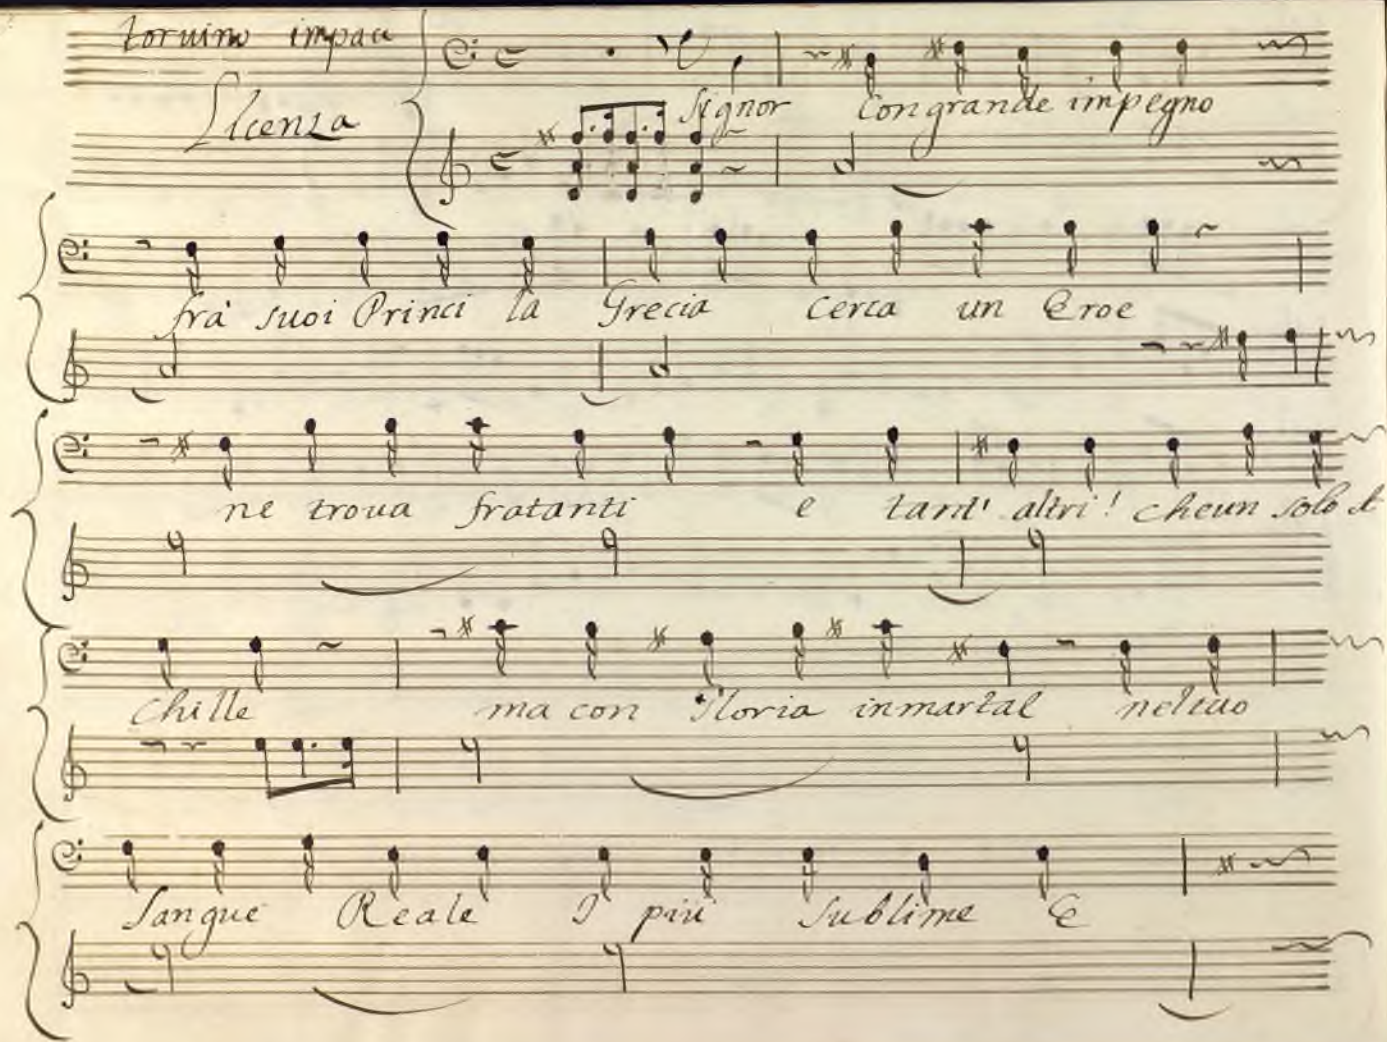 torvino impaci
Licenza
Signor Con grande impegno
fra' suoi Princi la Grecia cerca un Eroe
ne troua fratanti e tant' altri! cheun solo A
chille ma con Gloria inmartal neltuo
Sangue Reale I più Sublime E